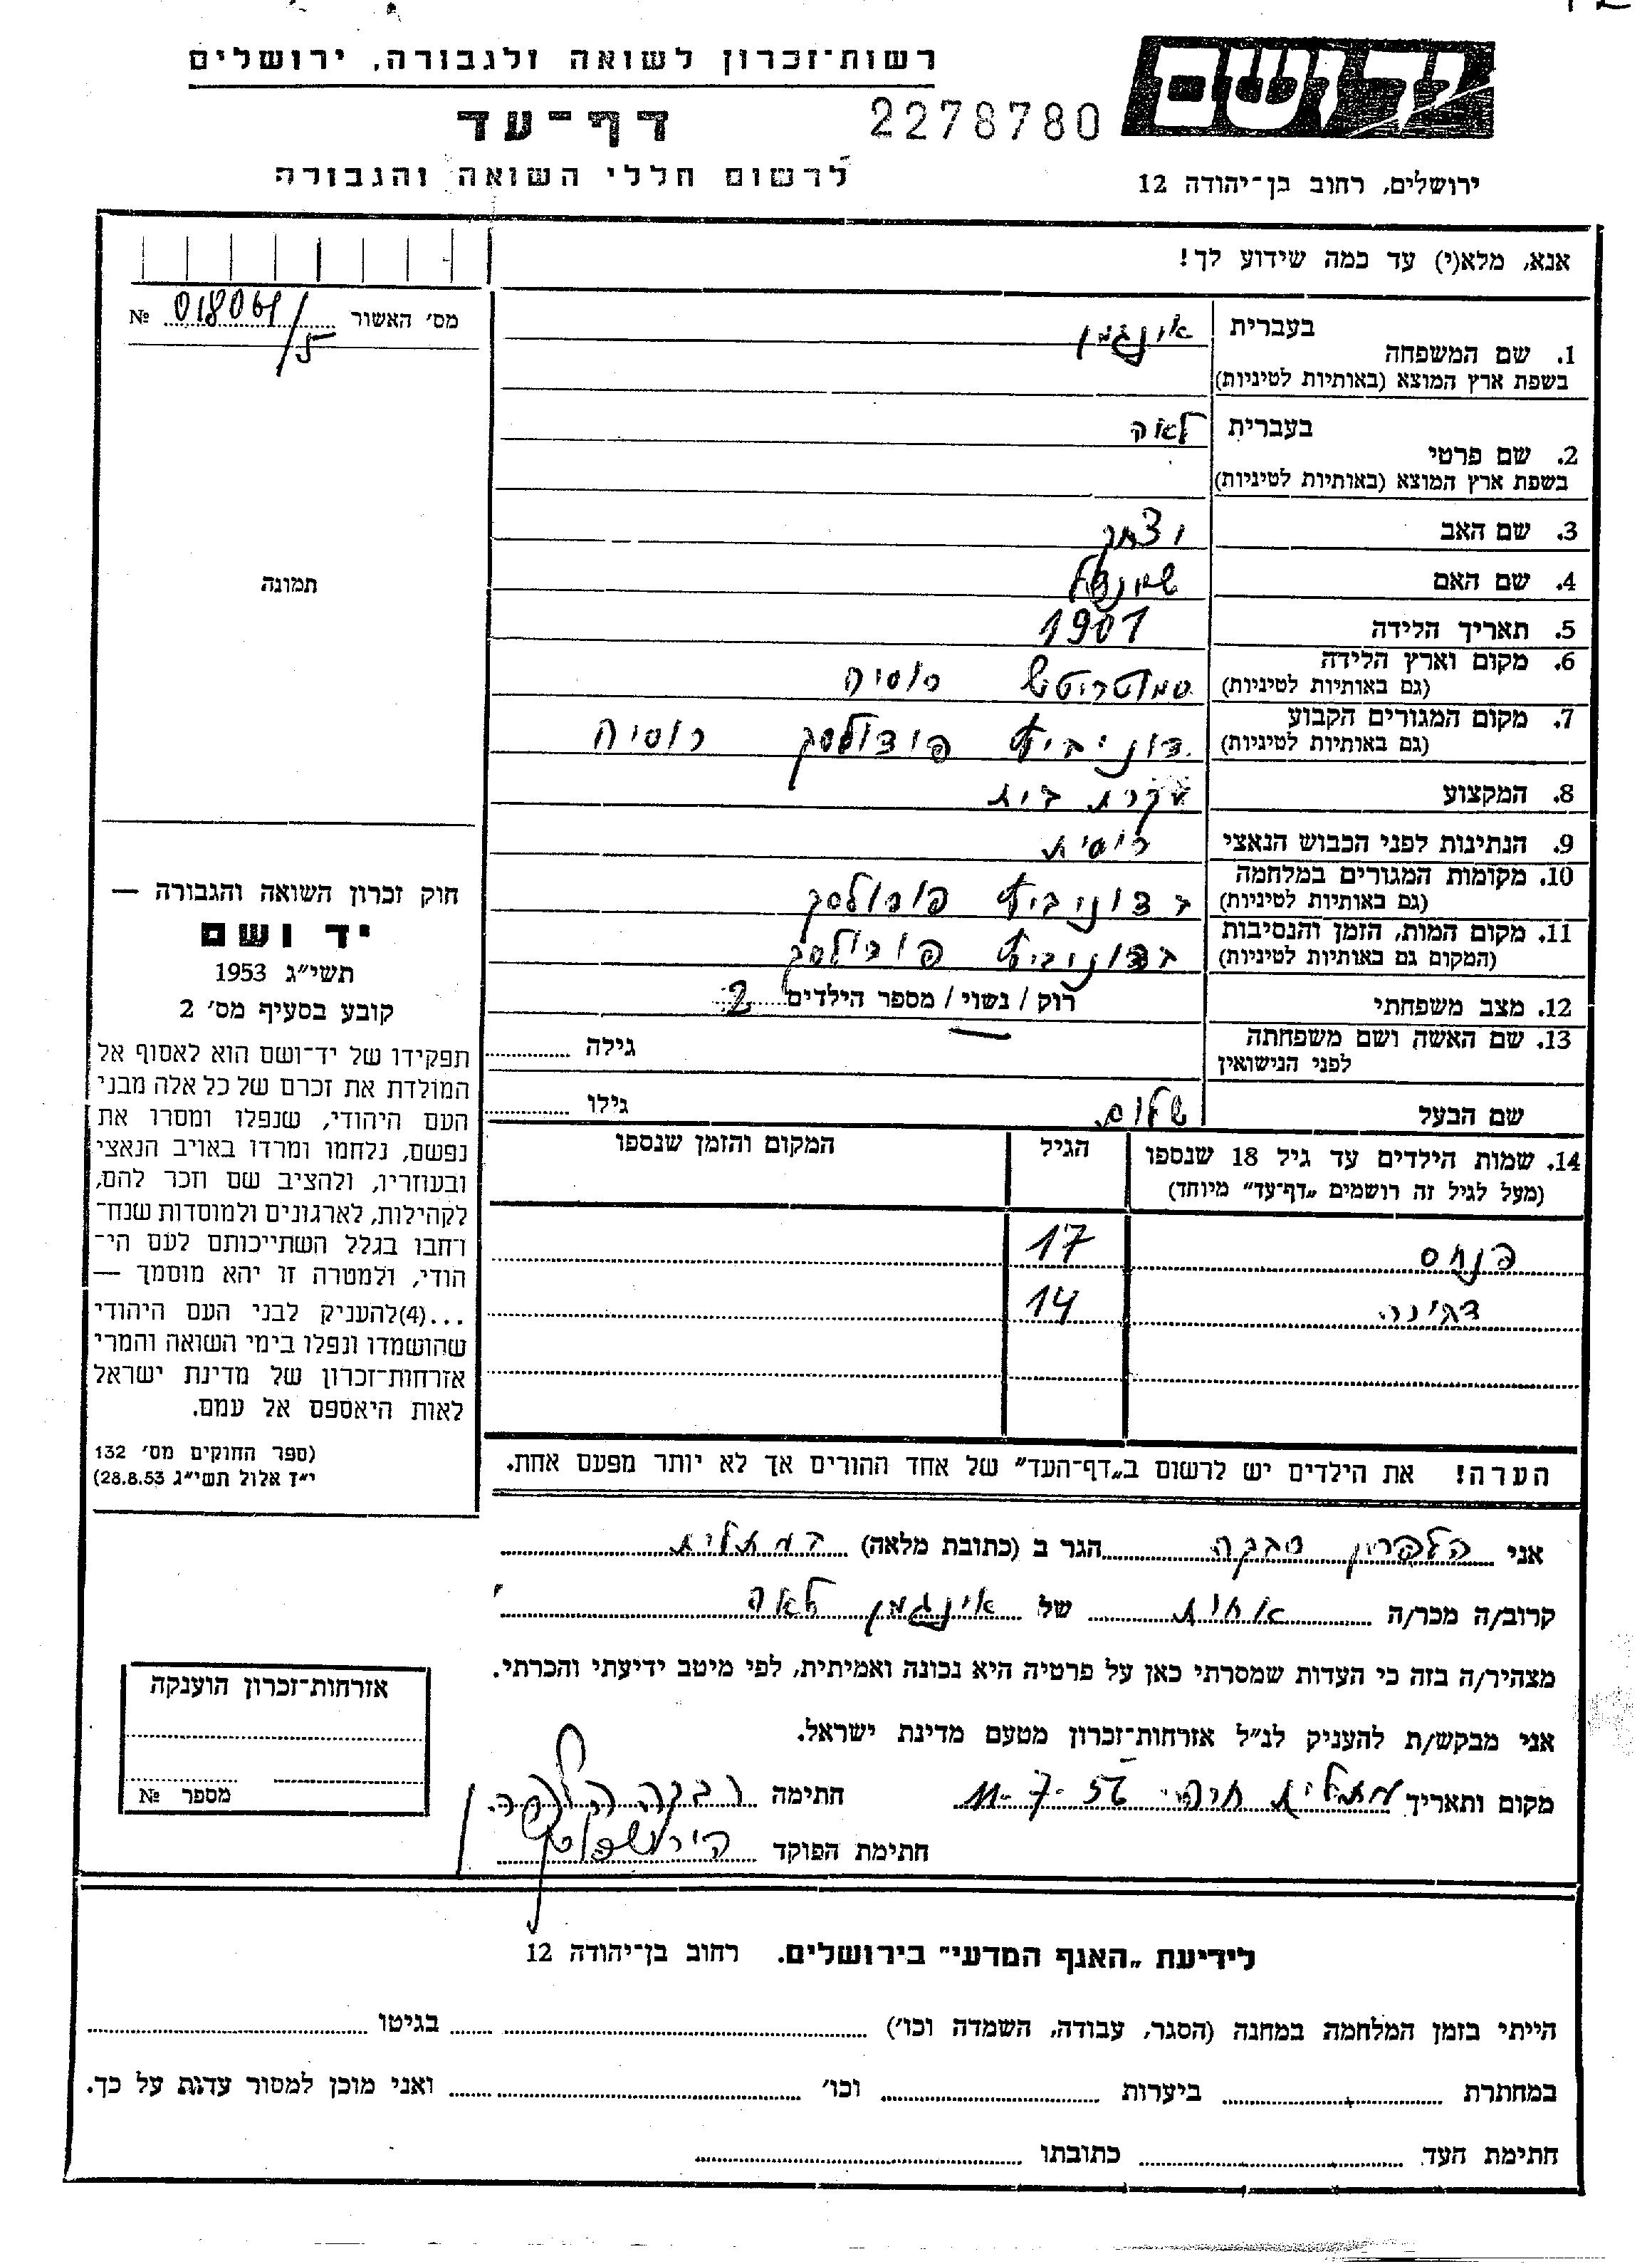 רשות־זכרון לשואה ולגבורה, ירושלים
יד ושם
דף־עד
2278780
לרשום חללי השואה והגבורה
ירושלים, רחוב בן־יהודה 12
אנא, מלא(י) עד כמה שידוע לך!
מס׳ האשור № 018061/5
1. שם המשפחה בעברית אינגמן
בשפת ארץ המוצא (באותיות לטיניות)
2. שם פרטי בעברית לאה
בשפת ארץ המוצא (באותיות לטיניות)
3. שם האב יצחק
4. שם האם שיינדל
5. תאריך הלידה 1901
6. מקום וארץ הלידה רוסיה
(גם באותיות לטיניות)
7. מקום המגורים הקבוע רוסיה
(גם באותיות לטיניות)
8. המקצוע עקרת בית
9. הנתינות לפני הכבוש הנאצי רוסית
10. מקומות המגורים במלחמה
(גם באותיות לטיניות)
11. מקום המות, הזמן והנסיבות
(המקום גם באותיות לטיניות)
12. מצב משפחתי רוק / נשוי / מספר הילדים 2
13. שם האשה ושם משפחתה גילה
לפני הנישואין
שם הבעל שלום גילו
14. שמות הילדים עד גיל 18 שנספו הגיל המקום והזמן שנספו
(מעל לגיל זה רושמים „דף־עד״ מיוחד)
פנחס 17
14
הערה! את הילדים יש לרשום ב„דף־העד״ של אחד ההורים אך לא יותר מפעם אחת.
תמונה
חוק זכרון השואה והגבורה —
יד ושם
תשי״ג 1953
קובע בסעיף מס׳ 2
תפקידו של יד־ושם הוא לאסוף אל
המולדת את זכרם של כל אלה מבני
העם היהודי, שנפלו ומסרו את
נפשם, נלחמו ומרדו באויב הנאצי
ובעוזריו, ולהציב שם וזכר להם,
לקהילות, לארגונים ולמוסדות שנח־
רחבו בגלל השתייכותם לעם הי־
הודי, ולמטרה זו יהא מוסמך —
...(4)להעניק לבני העם היהודי
שהושמדו ונפלו בימי השואה והמרי
אזרחות־זכרון של מדינת ישראל
לאות היאספם אל עמם.
(ספר החוקים מס׳ 132
י״ז אלול תשי״ג 28.8.53)
אני הלפרין רבקה הגר ב (כתובת מלאה) במתלית
קרוב/ה מכר/ה אחות של אינגמן לאה
מצהיר/ה בזה כי העדות שמסרתי כאן על פרטיה היא נכונה ואמיתית, לפי מיטב ידיעתי והכרתי.
אני מבקש/ת להעניק לנ״ל אזרחות־זכרון מטעם מדינת ישראל.
מקום ותאריך 11-7-56 חתימה
חתימת הפוקד
אזרחות־זכרון הוענקה
מספר №
לידיעת „האגף המדעי״ בירושלים. רחוב בן־יהודה 12
הייתי בזמן המלחמה במחנה (הסגר, עבודה, השמדה וכו׳) בגיטו
במחתרת ביערות וכו׳ ואני מוכן למסור עדות על כך.
חתימת העד כתובתו